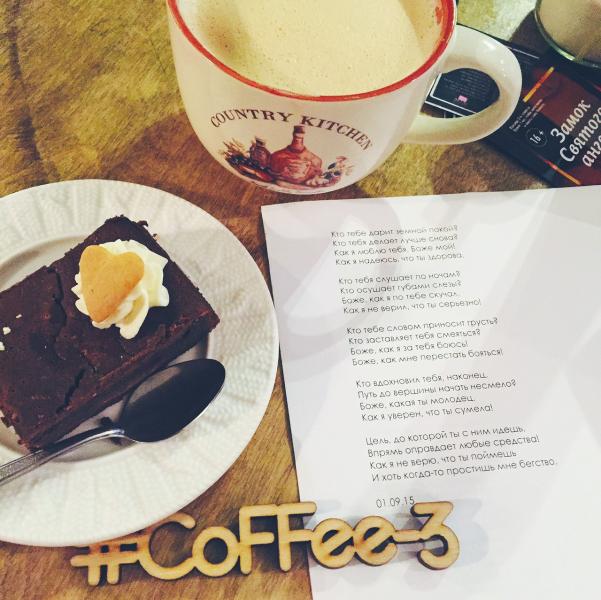 COUNTRY KITCHEN
16+
Замок
Святого
анге
Кто тебе дарит земной покой?
Кто тебя делает лучше снова?
Как я люблю тебя, Боже мой!
Как я надеюсь, что ты здорова.
Кто тебя слушает по ночам?
Кто осушает губами слезы?
Боже, как я по тебе скучал,
Как я не верил, что ты серьезно!
Кто тебе словом приносит грусть?
Кто заставляет тебя смеяться?
Боже, как я за тебя боюсь!
Боже, как мне перестать бояться!
Кто вдохновил тебя, наконец,
Путь до вершины начать несмело?
Боже, какая ты молодец,
Как я уверен, что ты сумела!
Цель, до которой ты с ним идешь,
Впрямь оправдает любые средства!
Как я не верю, что ты поймешь
И хоть когда-то простишь мне бегство.
01.09.15
#CoFFee-3